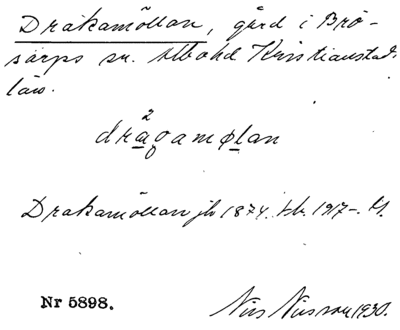 Drakamöllan, gård i Brö-
sarps sn. Albo hd Kristianstads
län.
dragamølan
Drakamöllan jb 1874.
Nr 5898.
Nils Nilsson 1930.